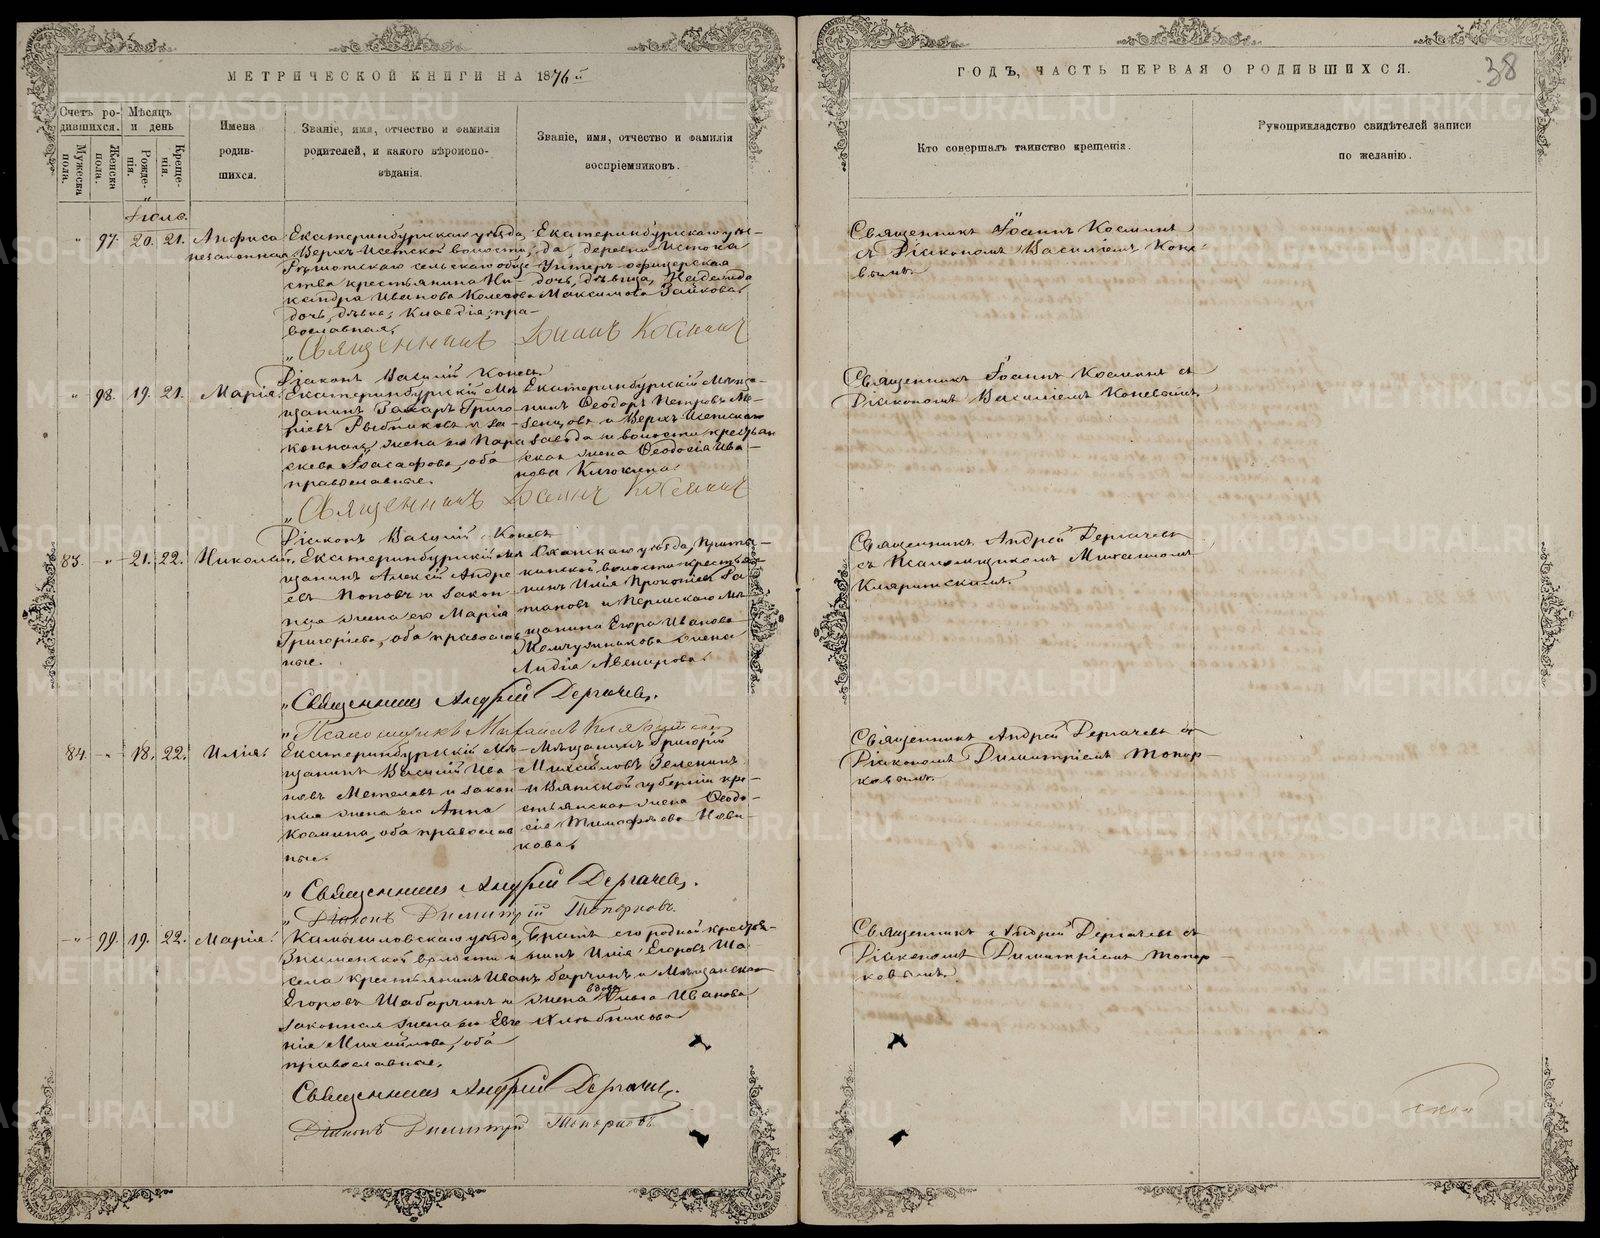 МЕТРИЧЕСКОЙ КНИГИ НА 1876й
ГОДЪ, ЧАСТЬ ПЕРВАЯ О РОДИВШИХСЯ.
38
Счетъ родившихся.
Мужеска пола.
Женска пола.
Мѣсяцъ и день
Рожденія.
Крещенія.
Имена родившихся.
Званіе, имя, отчество и фамилія родителей, и какого вѣроисповѣданія.
Званіе, имя, отчество и фамилія воспріемниковъ.
Кто совершалъ таинство крещенія.
Рукоприкладство свидѣтелей записи по желанію.
Іюль.
" 97. 20. 21. Анфиса
незаконная
Екатеринбургскаго уѣзда,
Верхъ-Исетской волости,
сельскаго обще-
ства крестьянина Ни-
кандра Иванова Колегова
дочь, дѣвка, Клавдія, пра-
вославная.
Екатеринбургскаго уѣз-
да, деревни Истока
Унтеръ-офицерская
дочь, дѣвица, Надежда
Максимова Зайкова.
Священникъ Іоаннъ Косминъ
съ Діакономъ Василіемъ Коне-
вымъ.
"Священникъ Іоаннъ Косминъ
Діаконъ Василій Коневъ
" 98. 19. 21. Марія.
Екатеринбургскій Мѣ-
щанинъ Захаръ Григо-
рьевъ Рыбниковъ и за-
конная жена его Пара-
скева Іоасафова, оба
православные.
Екатеринбургскій Мѣща-
нинъ Ѳеодоръ Петровъ Ме-
зенцовъ и Верхъ-Исетскаго
завода и волости крестьян
ская жена Ѳеодосія Ива-
нова Клюкина.
Священникъ Іоаннъ Косминъ съ
Діакономъ Василіемъ Коневымъ.
"Священникъ Іоаннъ Косминъ
Діаконъ Василій Коневъ
83. " 21. 22. Николай.
Екатеринбургскій Мѣ
щанинъ Алексѣй Андре
евъ Поповъ и закон
ная жена его Марія
Григорьева, оба православ
ные.
Оханскаго уѣзда,
волости крестья
нинъ Илія Прокопьевъ
и Пермскаго Мѣ
щанина Егора Иванова
Жемчужникова жена
Лидія Авенирова.
Священникъ Андрей Дергачевъ
съ Псаломщикомъ Михаиломъ
"Священникъ Андрей Дергачевъ.
"Псаломщикъ Михаилъ
84. " 18. 22. Илія.
Екатеринбургскій Мѣ-
щанинъ Василій Ива
новъ Метелевъ и закон
ная жена его Анна
Космина, оба православ
ные.
Мѣщанинъ Григорій
Михайловъ Зеленинъ
и Вятской губерніи кре-
стьянская жена Ѳеодо-
сія Тимофѣева Нови-
кова.
Священникъ Андрей Дергачевъ съ
Діакономъ Димитріемъ Топор-
ковымъ.
"Священникъ Андрей Дергачевъ.
"Діаконъ Димитрій Топорковъ.
" 99. 19. 22. Марія.
Камышловскаго уѣзда,
Знаменской волости и
села крестьянинъ Иванъ
Егоровъ Шабарчинъ и
законная жена его Евге
нія Михайлова, оба
православные.
Братъ его родной крестья-
нинъ Илія Егоровъ Ша-
барчинъ и Мѣщанская
жена вдова Ольга Иванова
Хлѣбникова
Священникъ Андрей Дергачевъ съ
Діакономъ Димитріемъ Топор-
ковымъ.
Священникъ Андрей Дергачевъ.
Діаконъ Димитрій Топорковъ
METRIKI.GASO-URAL.RU